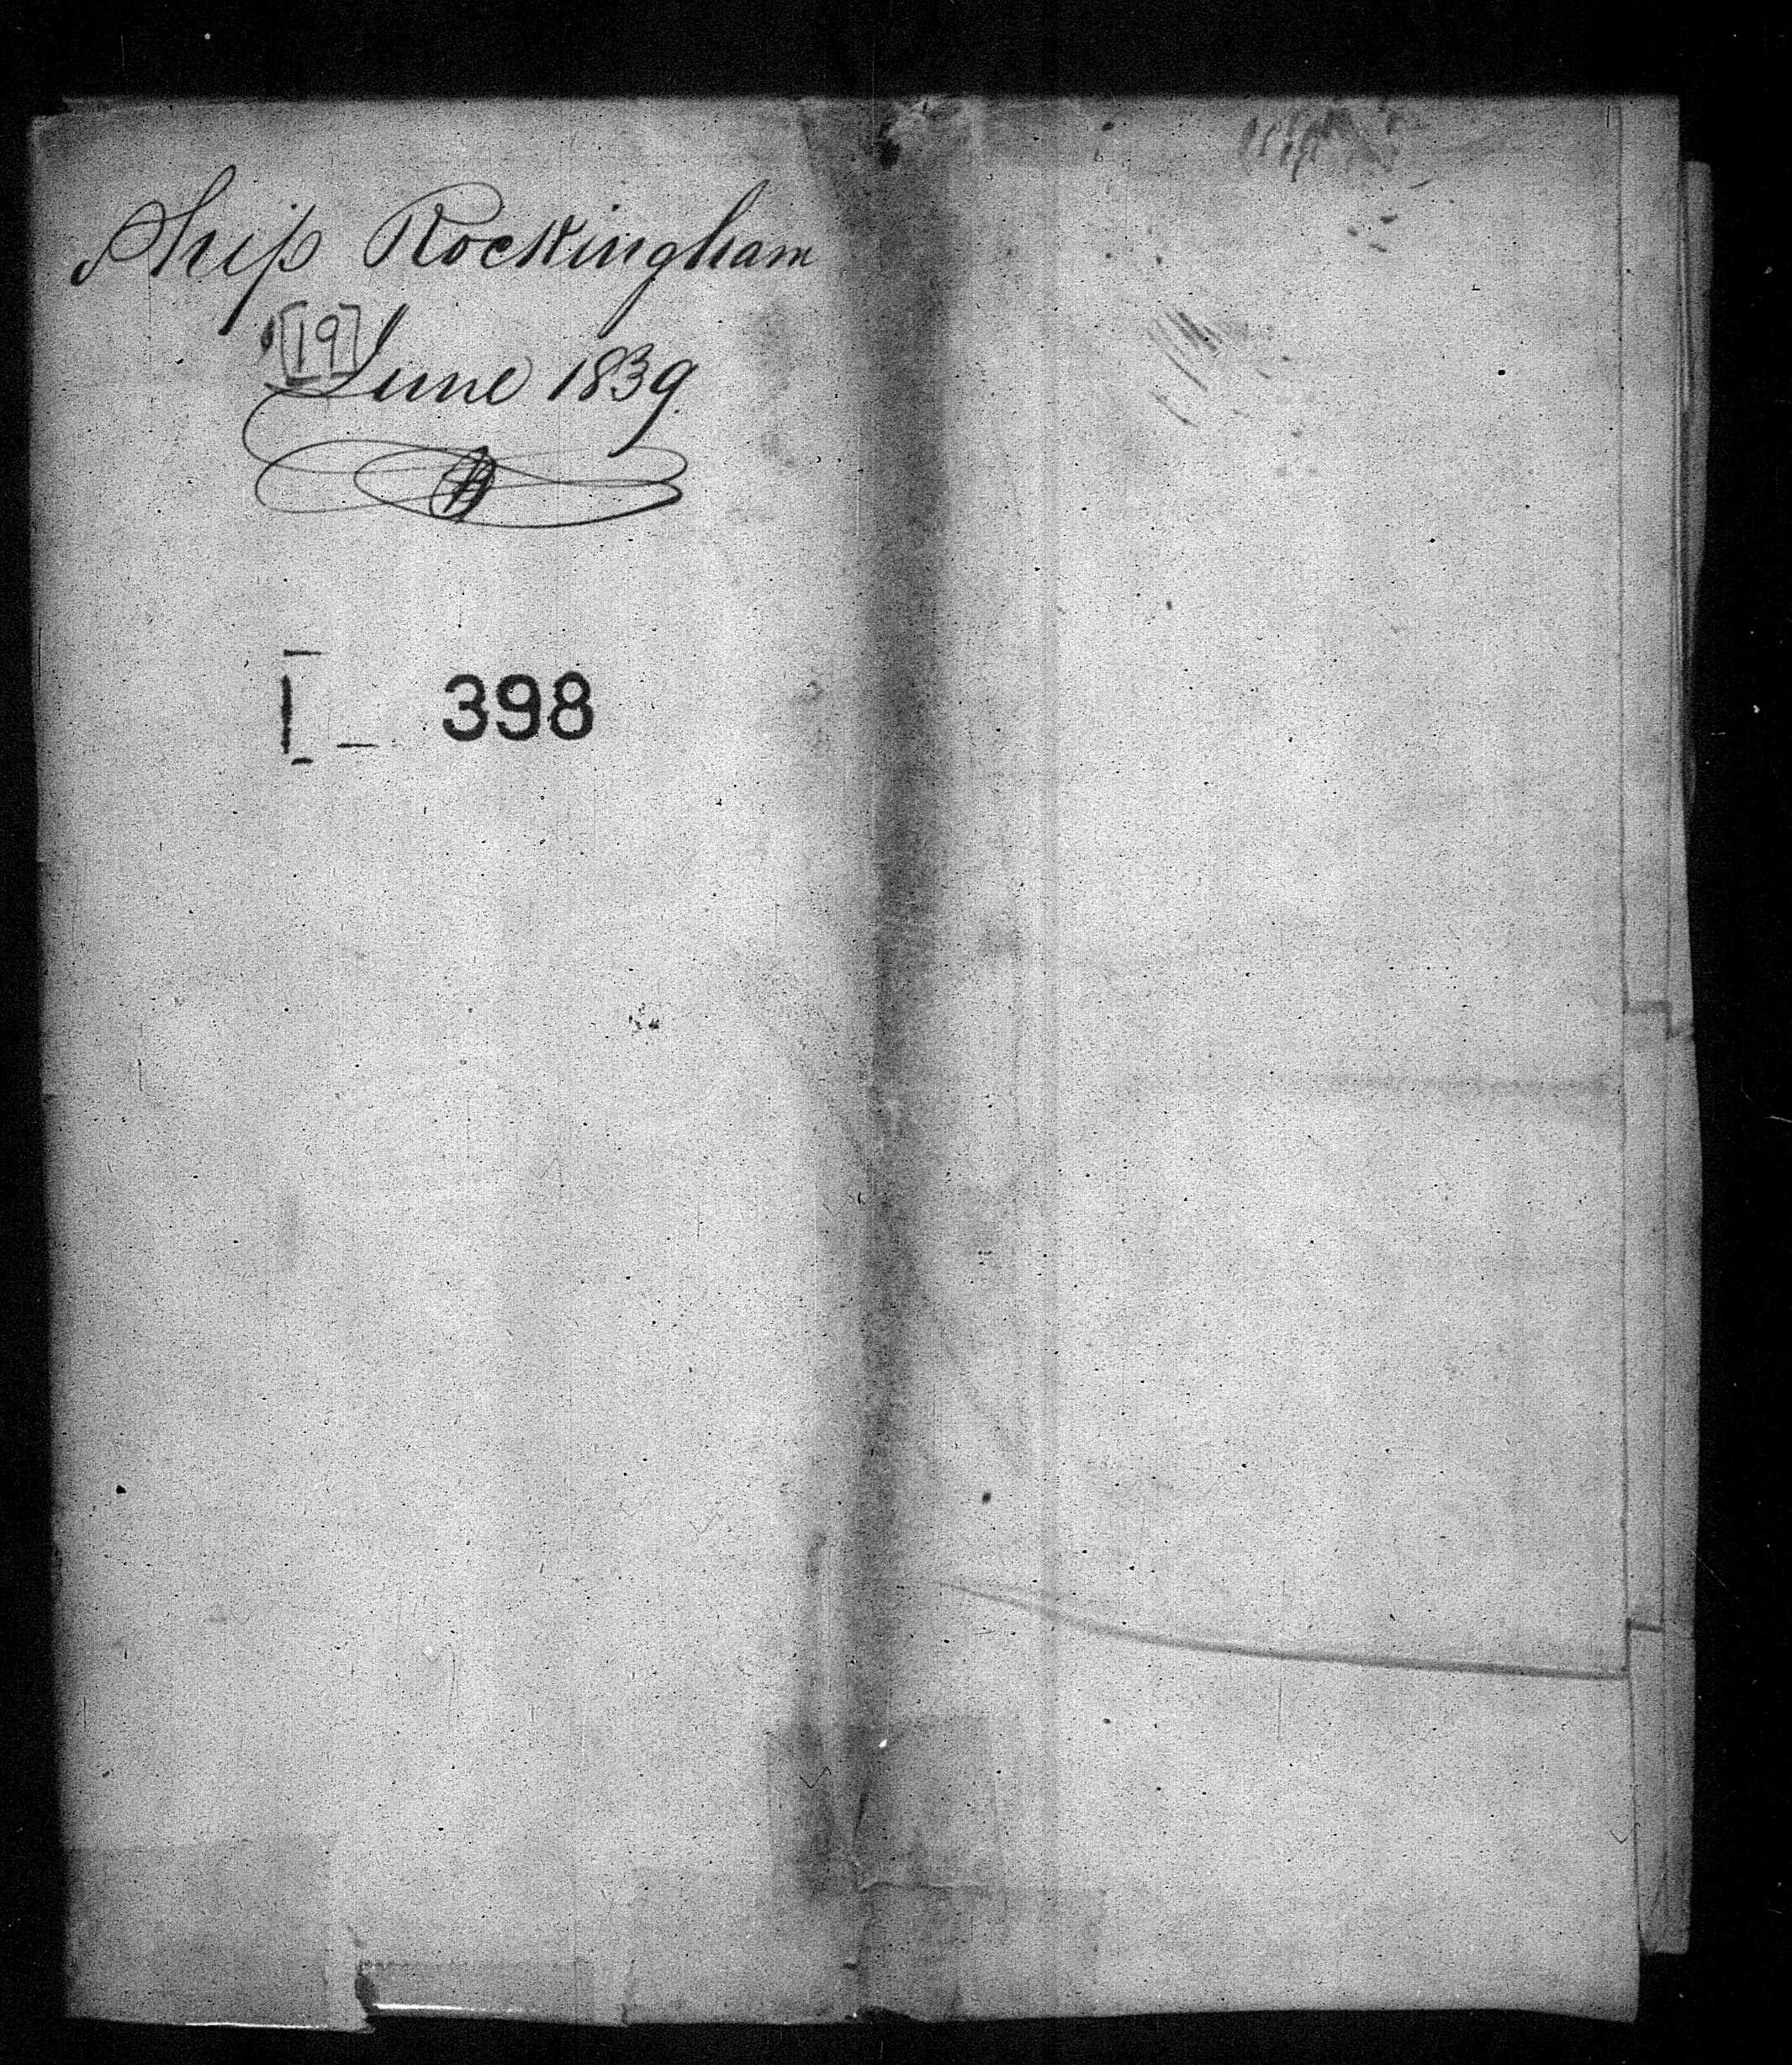 Ship Rockingham
[19]
June 1839
398